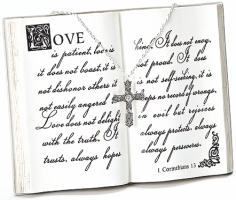 LOVE
is patient, love is
it does not boast, it is
not dishonor others it
not easily angered
Love does not delight
with the truth. It
trusts, always hopes
kind. It does not envy,
not proud. It does
is not self-seeking, it is
no record of wrongs,
in evil but rejoices
always protects, always
always perseveres.
1 Corinthians 13